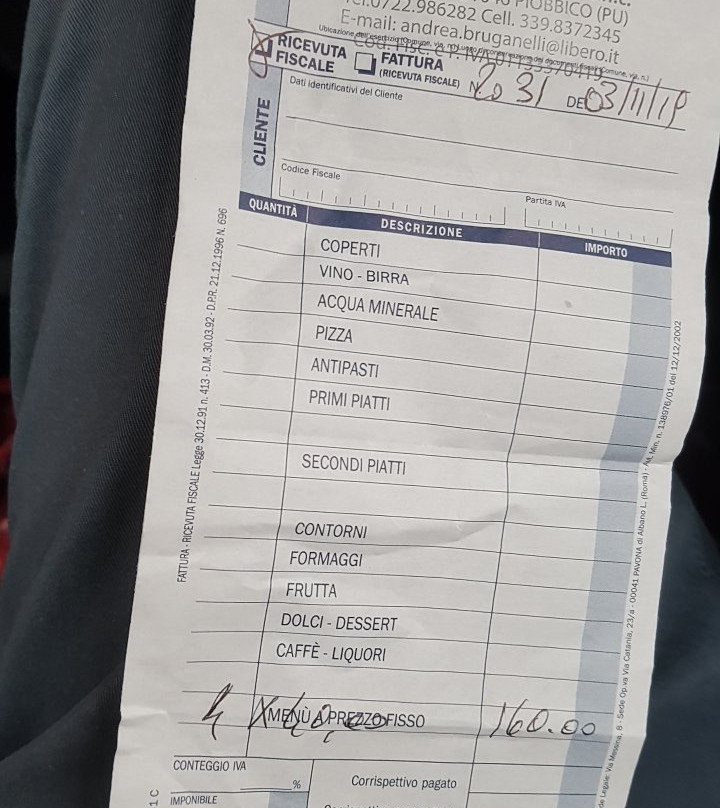 PIOBBICO (PU)
Tel.0722.986282 Cell. 339.8372345
E-mail: andrea.bruganelli@libero.it
Cod. Fisc. e P. IVA 01133370419
RICEVUTA FISCALE
FATTURA (RICEVUTA FISCALE) N. 2031 DEL 03/11/19
CLIENTE
Dati identificativi del Cliente
Codice Fiscale
Partita IVA
QUANTITÀ DESCRIZIONE IMPORTO
COPERTI
VINO - BIRRA
ACQUA MINERALE
PIZZA
ANTIPASTI
PRIMI PIATTI
SECONDI PIATTI
CONTORNI
FORMAGGI
FRUTTA
DOLCI - DESSERT
CAFFÈ - LIQUORI
4 X MENÙ A PREZZO FISSO 160.00
CONTEGGIO IVA
%
Corrispettivo pagato
IMPONIBILE
FATTURA - RICEVUTA FISCALE Legge 30.12.91 n. 413 - D.M. 30.03.92 - D.P.R. 21.12.1996 N. 696
8 - Sede Op.va Via Catania, 23/a - 00041 PAVONA di Albano L. (Roma) - Aut. Min. n. 138976/01 del 12/12/2002
1 C